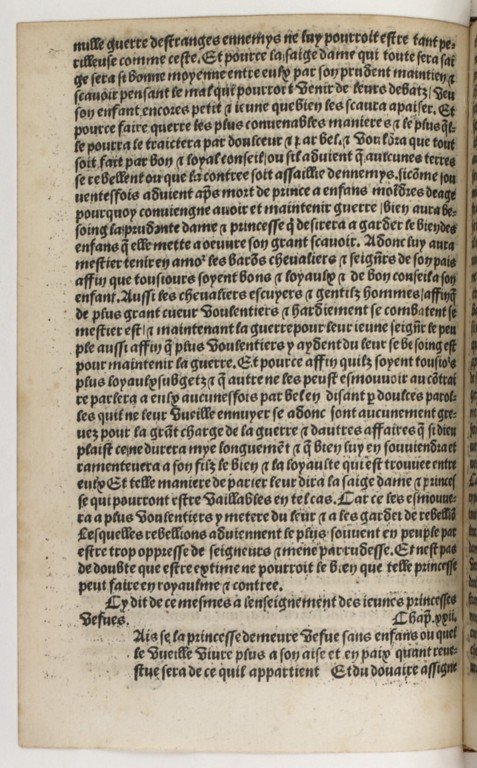 nulle guerre destranges ennemys ne luy pourroit estre tant pe-
rilleuse comme ceste. Et pource la saige dame qui toute sera sai
ge sera si bonne moyenne entre eulx par son prudent maintien ⁊
scauoir pensant le mal qui pourroit venir de leurs debatz / veu
son enfant encores petit ⁊ ieune que bien les scaura apaiser. Et
pource faire querre les plus conuenables manieres ⁊ le plus q̃l-
le pourra le traictera par doulceur ⁊ par bel. ⁊ vouldra que tout
soit fait par bon ⁊ loyal conseil / ou sil aduient q̃ aulcunes terres
se rebellent ou que la contree soit assaillie dennemys. sicõme sou
uentesfois aduient ap̃s mort de prince a enfans moĩdres deage
pourquoy conuiengne auoir et maintenir guerre / bien aura be-
soing la prudante dame ⁊ princesse q̃ desirera a garder le bien des
enfans q̃ elle mette a oeuure son grant scauoir. Adonc luy aura
mestier tenir en amoʳ les barõs cheualiers ⁊ seigñrs de son pais
affin que tousiours soyent bons ⁊ loyaulx ⁊ de bon conseil a son
enfant. Aussi les cheualiers escuyers ⁊ gentilz hommes / affinq̃
de plus grant cueur voulentiers ⁊ hardiement se combatent se
mestier est / ⁊ maintenant la guerre pour leur ieune seigñr le peu
ple aussi affin q̃ plus voulentiers y aydent du leur se besoing est
pour maintenir la guerre. Et pource affin quilz soyent tousioʳs
plus loyaulx subgetz ⁊ q̃ autre ne les peust esmouuoir au cõtrai
re parlera a eulx aucunesfois par bel en disant p̱ doulces parol-
les quil ne leur vueille ennuyer se adonc sont aucunement gre-
uez pour la grãt charge de la guerre ⁊ dautres affaires q̃ si dieu
plaist ce ne durera mye longuemẽt ⁊ q̃ bien luy en souuiendra et
ramenteuera a son filz le bien ⁊ la loyaulte qui est trouuee entre
eulx Et telle maniere de parler leur dira la saige dame ⁊ princes
se qui pourront estre vaillables en tel cas. Car ce les esmouue-
ra a plus voulentiers y metere du leur ⁊ a les garder de rebelliõ
Lesquelles rebellions aduiennent le plus souuent en peuple par
estre trop oppresse de seigneurs ⁊ mene par rudesse. Et nest pas
de doubte que estre extime ne pourroit le bien que telle princesse
peut faire en royaulme ⁊ contree.
Cy dit de ce mesmes a lenseignement des ieunes princesses
vefues. Chap̃. xxii.
Ais se la princesse demeure vefue sans enfans ou quel
le vueille viure plus a son aise et en paix quant reue-
stue sera de ce quil appartient Et du douaire assigne